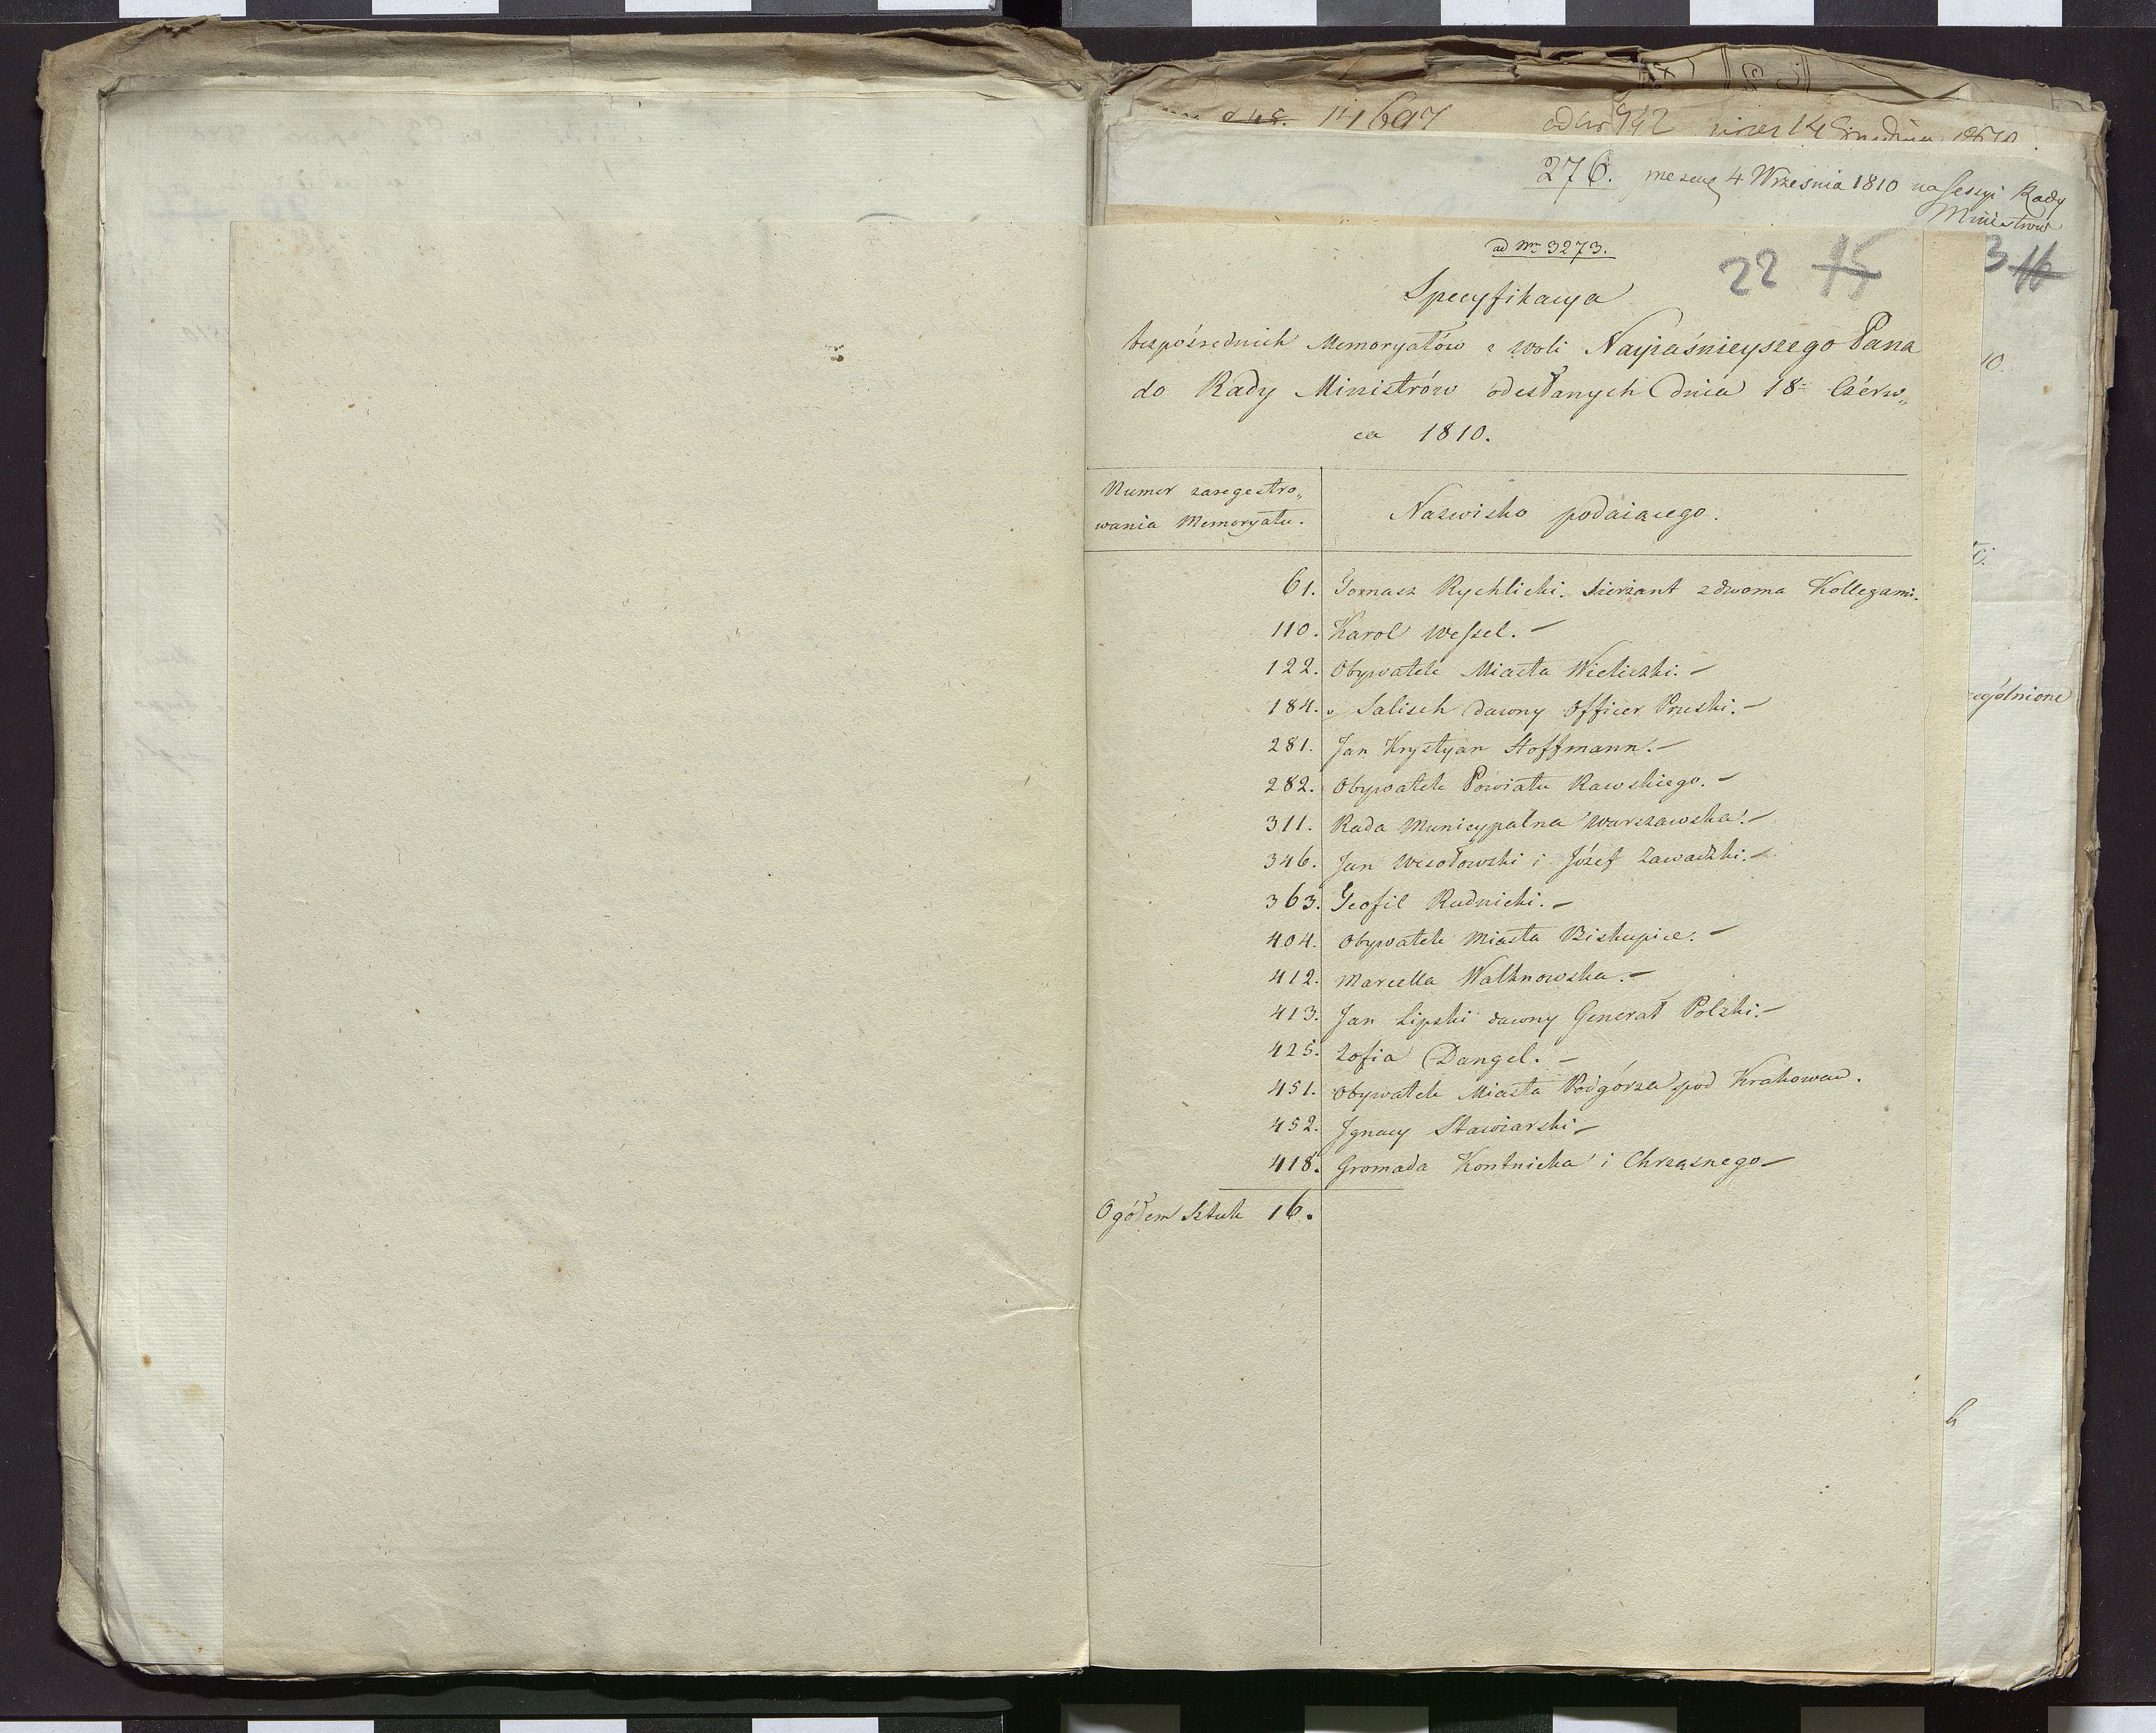 14697
276. 4 Września 1810 na Sessyi Rady
Ministrów
ad Nr 3273.
22 15
3 16
Specyfikacya
bezpóśrednich Memoryałów z woli Nayiaśnieyszego Pana
do Rady Ministrów odesłanych dnia 18 Czérw„
ca 1810.
Numer zaregestro„
wania Memoryału.
Nazwisko podaiącego.
61. Tomasz Rychlicki. Sierżant z dwoma Kollegami.
110. Karol Wessel. —
122. Obywatele Miasta Wieliczki. —
184. Salisch dawny Officer Pruski. —
281. Jan Krystyan Hoffmann. —
282. Obywatele Powiatu Rawskiego. —
311. Rada Municypalna Warszawska. —
346. Jan Wesołowski i Józef Zawadzki. —
363. Teofil Rudnicki. —
404. Obywatele Miasta Biskupice. —
412. Marcella Walknowska. —
413. Jan Lipski dawny Generał Polski. —
425. Zofia Dangel. —
451. Obywatele Miasta Podgórza pod Krakowem.
452. Ignacy Stawiarski —
418. Gromada Kontnicka i Chrząsnego —
Ogółem Sztuk 16.
gólnione